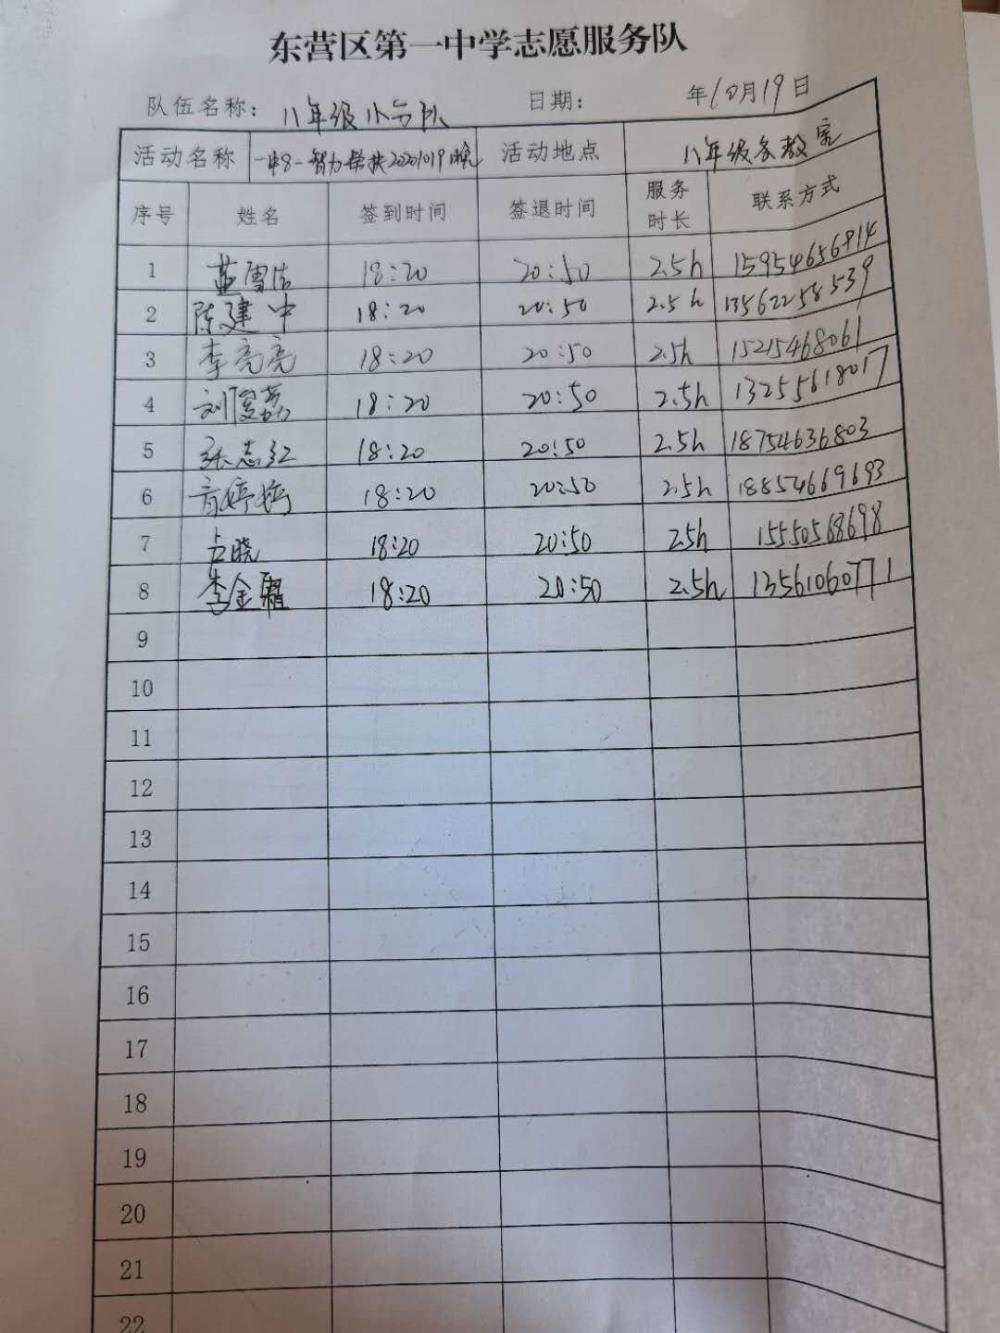 东营区第一中学志愿服务队
队伍名称：八年级小分队 日期： 年10月19日
活动名称 一中8-智力帮扶20201019晚 活动地点 八年级各教室
序号 姓名 签到时间 签退时间 服务时长 联系方式
1 蓝雪洁 18:20 20:50 2.5h 15954656814
2 陈建中 18:20 20:50 2.5h 13562258539
3 李亮亮 18:20 20:50 2.5h 15215468061
4 刘俊荔 18:20 20:50 2.5h 13255618017
5 张志红 18:20 20:50 2.5h 18754636803
6 商婷婷 18:20 20:50 2.5h 18854669693
7 占晓 18:20 20:50 2.5h 15550568698
8 李金霜 18:20 20:50 2.5h 13561060771
9
10
11
12
13
14
15
16
17
18
19
20
21
22